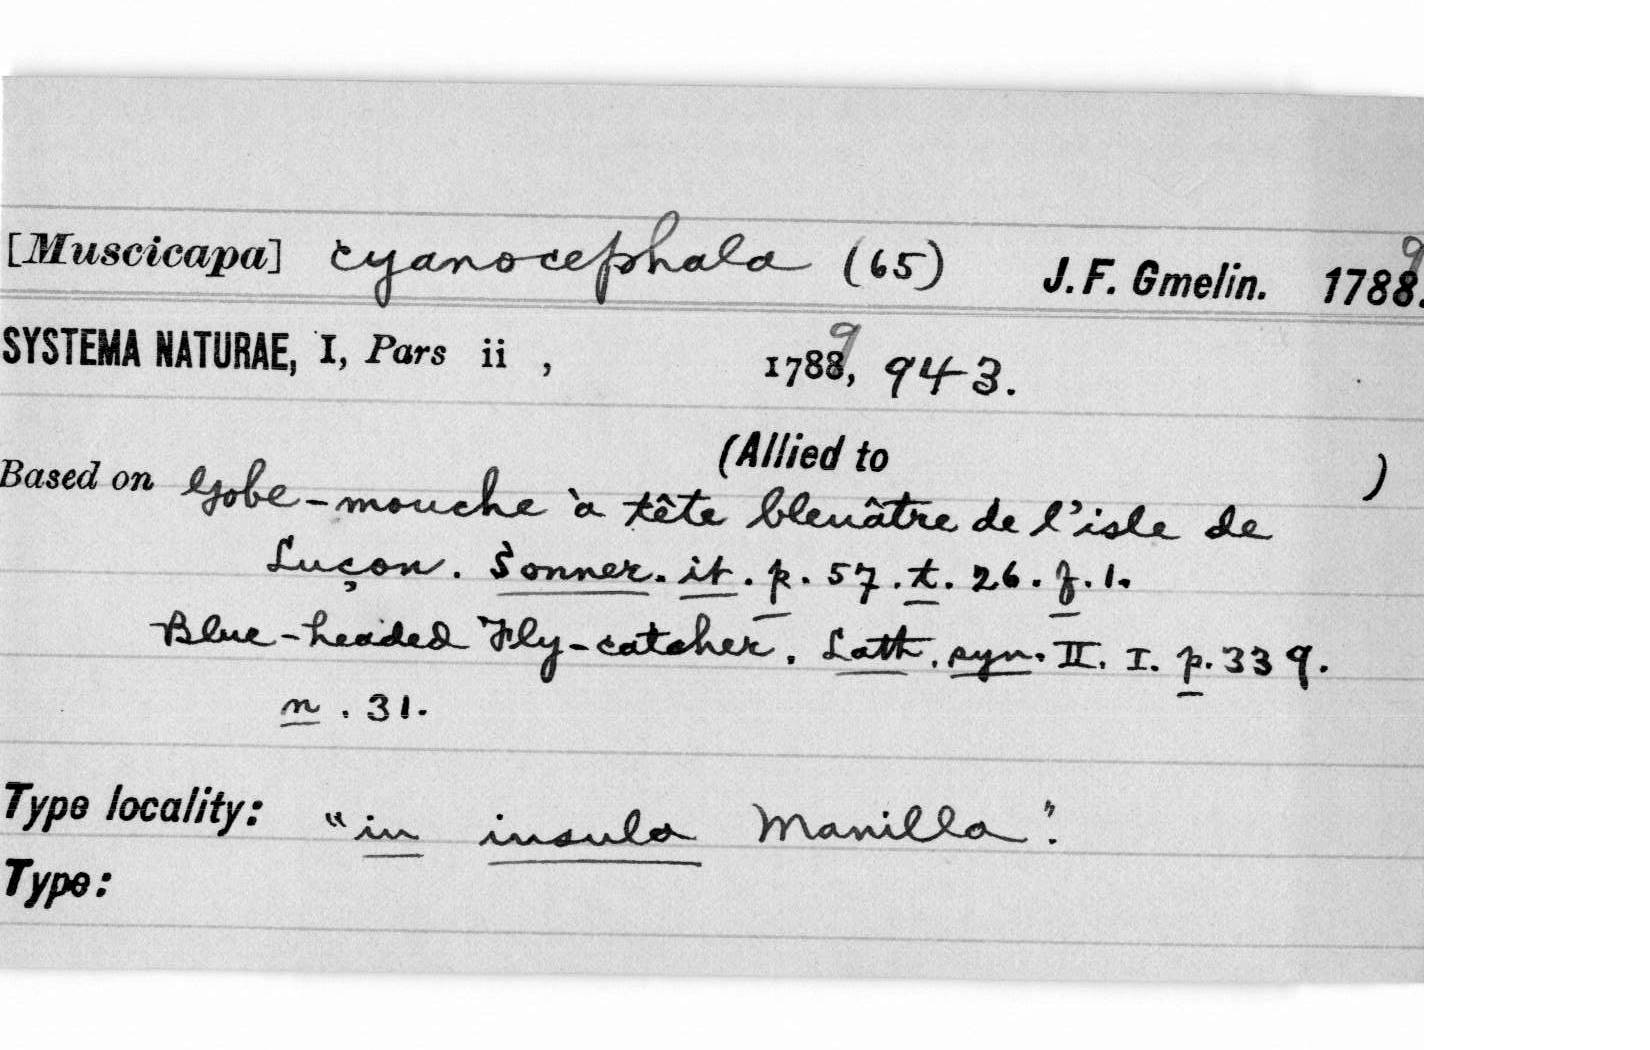 [Muscicapa] cyanocephala (65) J. F. Gmelin. 1788. 9
SYSTEMA NATURAE, I, Pars ii , 1788, 9 943.
(Allied to )
Based on Gobe-mouche à tête bleuâtre de l'isle de
Luçon. Sonner. it. p. 57. t. 26. f. 1.
Blue-headed Fly-catcher. Lath. syn. II. I. p. 339.
n. 31.
Type locality: "in insula Manilla".
Type: